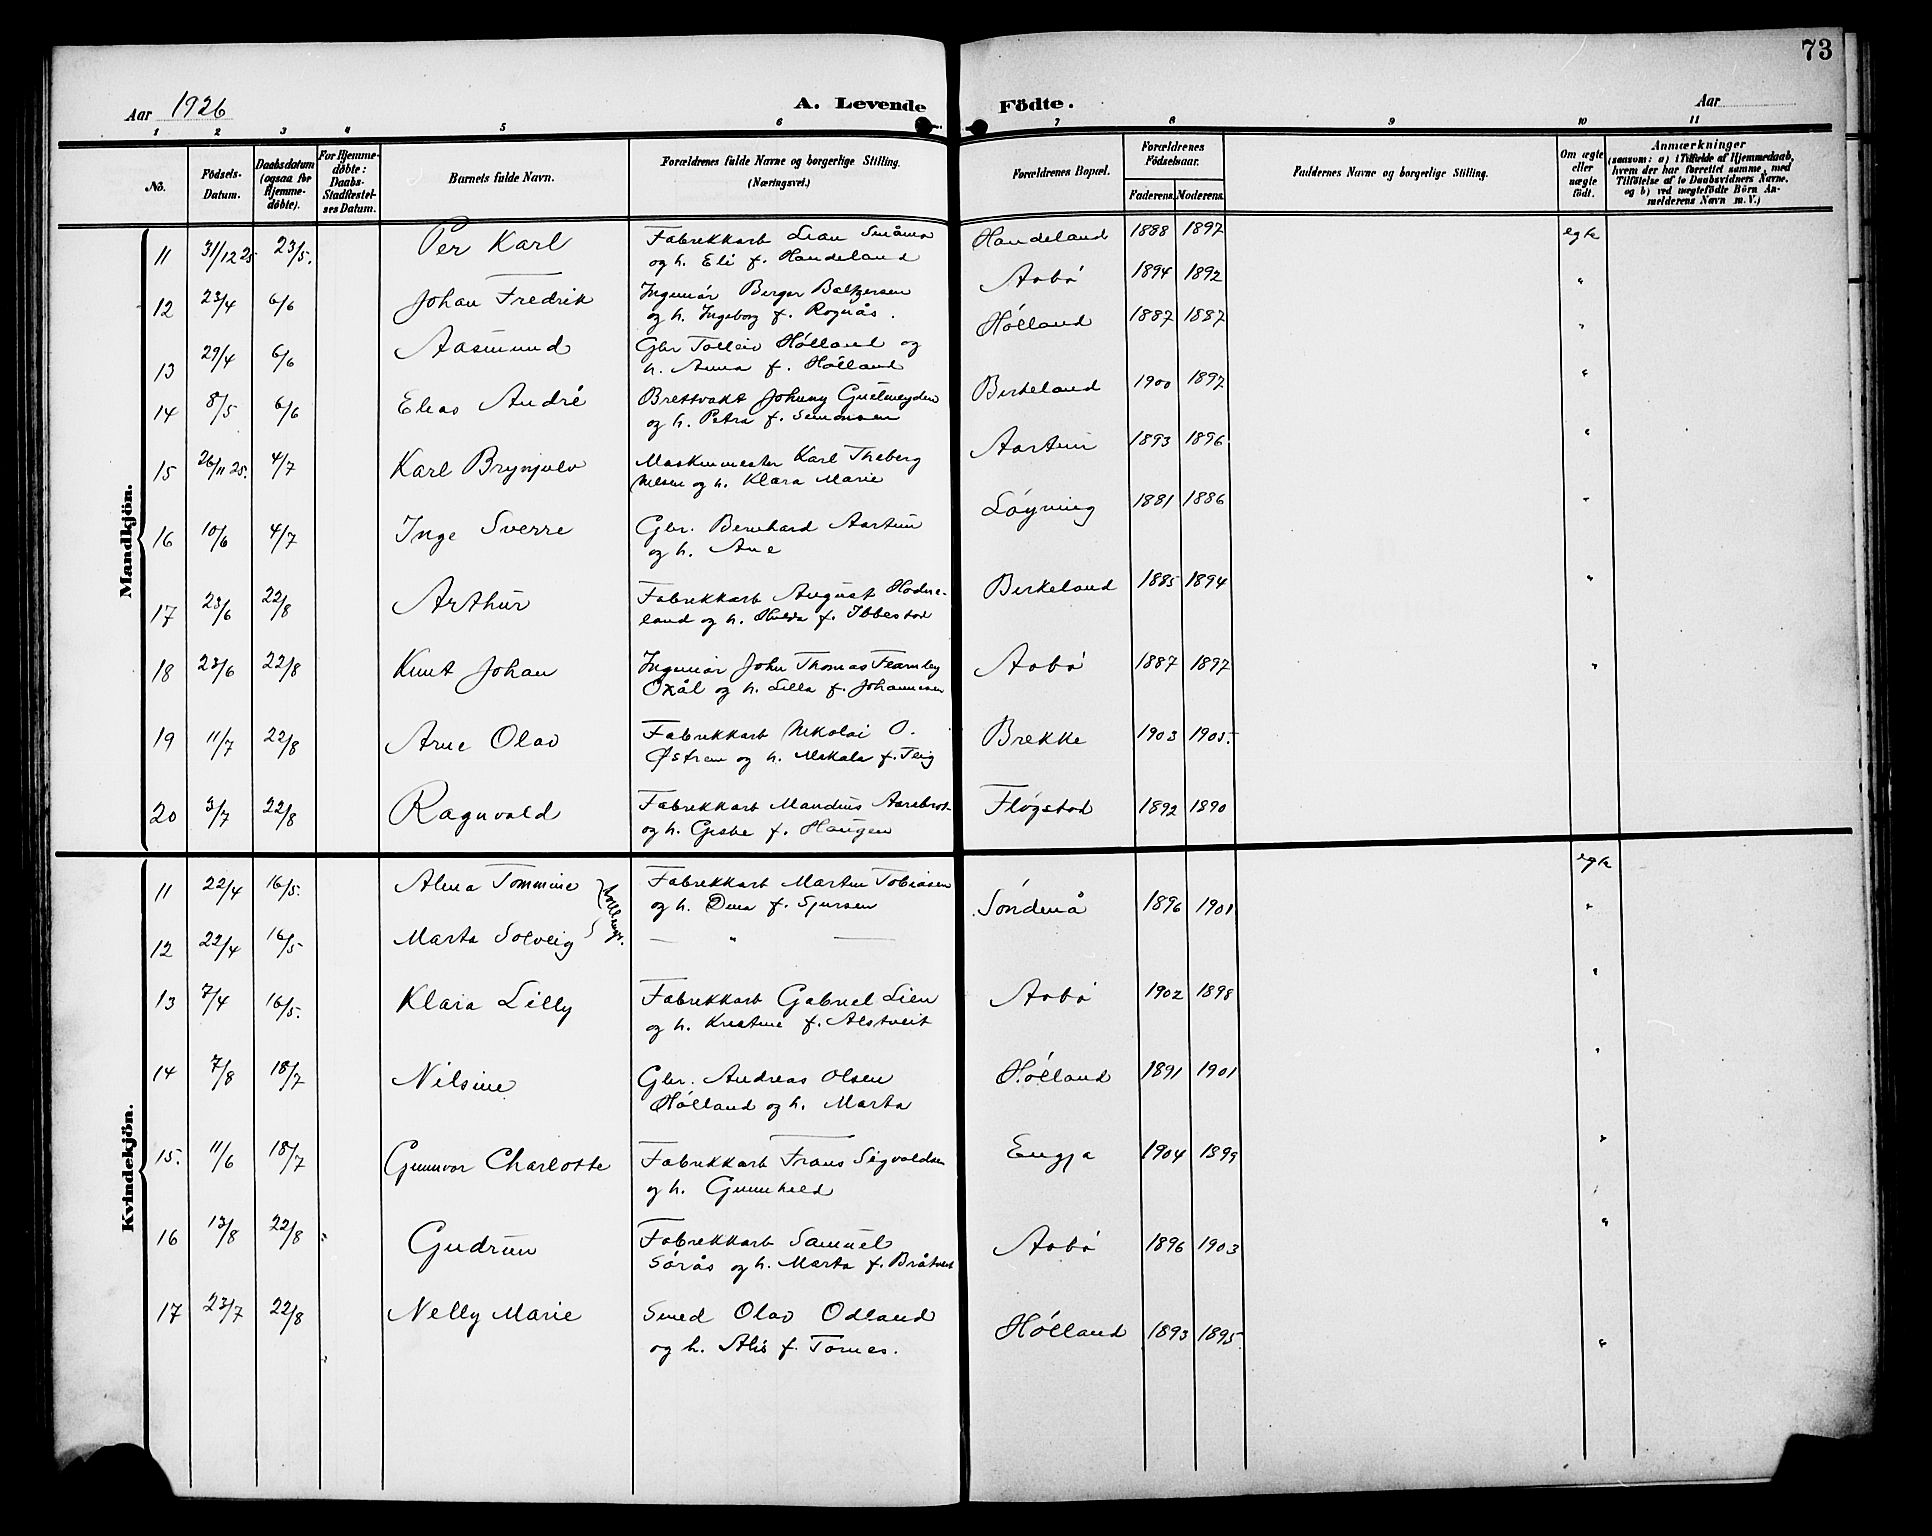 73
Aar 1926 A. Levende Födte. Aar
1 2 3 4 5 6 7 8 9 10 11
No. Födsels-Datum. Daabsdatum (ogsaa for Hjemme-döbte). For Hjemme-döbte: Daabs-Stadfæstel-ses Datum. Barnets fulde Navn. Forældrenes fulde Navne og borgerlige Stilling. (Næringsvei.) Forældrenes Bopæl. Forældrenes Födselsaar. Faderens. Moderens. Faddernes Navne og borgerlige Stilling. Om ægte eller uægte født. Anmærkninger (saasom: a) i Tilfælde af Hjemmedaab, hvem der har forrettet samme, med Tilföielse af to Daabsvidners Navne, og b) ved uægtefödte Börn An-melderens Navn m. V.)
Mandkjön.
11 31/12 25 23/5. Per Karl Fabrikkarb Lian Småmo Handeland 1888 1897 egte
og h. Eli f. Handeland
12 23/4 6/6 Johan Fredrik Ingeniør Berger Baltzersen Aabø 1894 1892 "
og h. Ingeborg f. Rognås.
13 29/4 6/6 Aasmund Gbr Tolleiv Hølland og Hølland 1887 1887 "
h. Anna f. Hølland
14 8/5 6/6 Elias André Brettvakt Johnny Birkeland 1900 1897 "
og h. Petra f. Simonsen
15 26/11 25. 4/7 Karl Brynjulv Maskinmester Karl Theberg Aartun 1893 1896 "
Nilsen og h. Klara Marie
16 10/6 4/7 Inge Sverre Gbr. Bernhard Aartun Løyning 1881 1886 "
og h. Ane
17 23/6 22/8 Arthur Fabrikkarb August Hodne- Birkeland 1885 1894 "
land og h. Hulda f. Ibbestad
18 23/6 22/8 Knut Johan Ingeniør John Thomas Flamley Aabø 1887 1897 "
Oxål og h. Lilla f. Johannesen
19 11/7 22/8 Arne Olav Fabrikkarb Nikolai O. Brekke 1903 1905.
Østrem og h. f. Teig
20 3/7 22/8 Ragnvald Fabrikkarb Mandius Aarebrot Fløgstad 1892 1890
og h. Giske f. Haugen
Kvindekjön.
11 22/4 16/5. Alma Tommine Tvillinger. Fabrikkarb Martin Tobiasen Søndenå 1896 1901 egte
og h. Dina f. Sjursen "
12 22/4 16/5 Marta Solveig — " —
13 7/4 16/5. Klara Lilly Fabrikkarb Gabriel Lien Aabø 1902 1898 "
og h. Kristine f. Alstveit
14 7/8 18/7 Nilsine Gbr. Andreas Olsen Hølland 1891 1901 "
Hølland og h. Marta
15. 11/6 18/7 Gunnvor Charlotte Fabrikkarb Frans Sigvaldsen Engja 1904 1899 "
og h. Gunnhild
16 13/8 22/8 " Gudrun Fabrikkarb Samuel Aabø 1896 1903 "
Sørås og h. Marta f. Bråtveit
17 23/7 22/8 Nelly Marie Smed Olav Odland Hølland 1893 1895. "
og h. Alis f. Tornes.